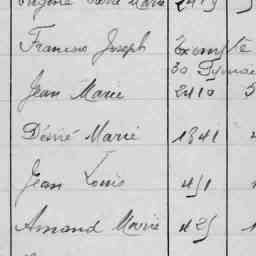 Marie 2419
François Joseph Exempte
30
Jean Marie 2410
Désiré Marie 1341
Jean Louis 451
Amand Marie 425